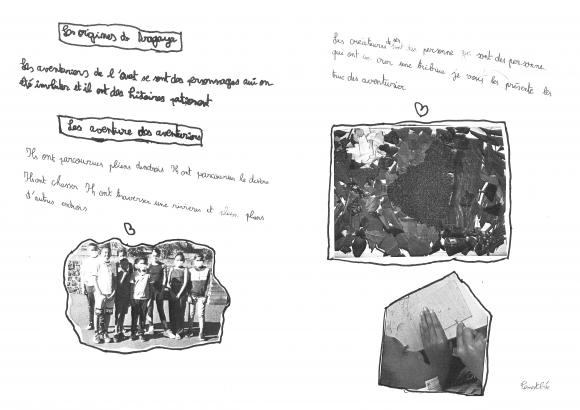 Les origines de Dragaya
Les aventuriers de l'ouest se sont des personnages qui on
été inventer et il ont des histoires passionant
Les aventure des aventuriers
Ils ont parcourues pleins dendrois Il ont parcourue le desere
Ils ont chasser Ils ont traverser une rivieres et plein pleins
d'autres endrois
Les createures des personne sont des personne
qui ont crer une tribue je vous les présente les
des aventurier